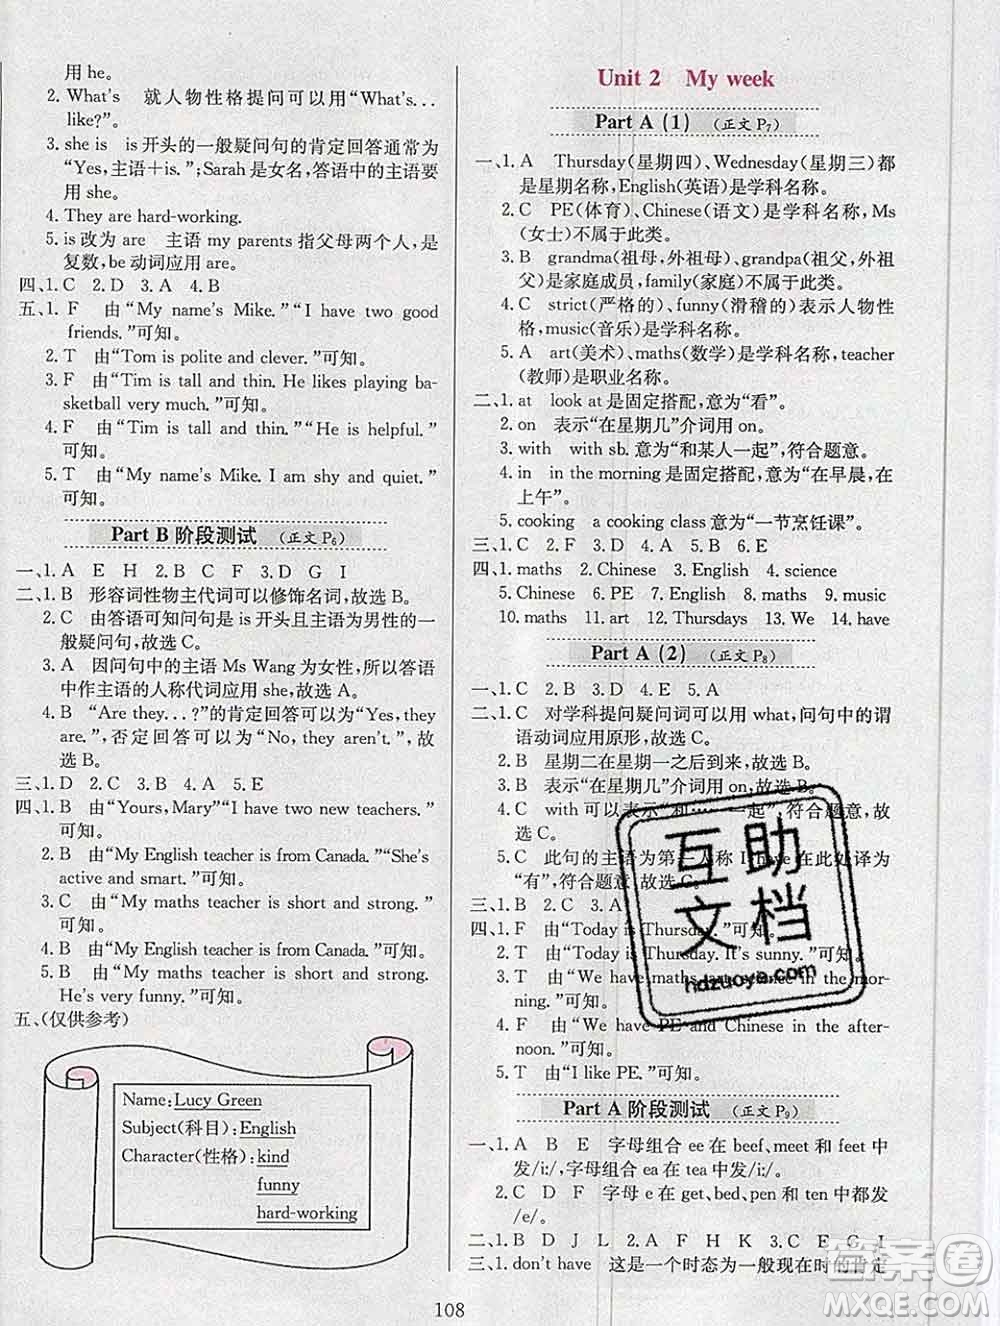 用 he。
2. What's 就人物性格提问可以用“What's...
like?”。
3. she is is 开头的一般疑问句的肯定回答通常为
“Yes,主语+is.”;Sarah 是女名,答语中的主语要
用 she。
4. They are hard-working.
5. is 改为 are 主语 my parents 指父母两个人,是
复数,be 动词应用 are。
四、1. C 2. D 3. A 4. B
五、1. F 由“My name's Mike.”“I have two good
friends.”可知。
2. T 由“Tom is polite and clever.”可知。
3. F 由“Tim is tall and thin. He likes playing ba-
sketball very much.”可知。
4. F 由“Tim is tall and thin.”“He is helpful.”
可知。
5. T 由“My name's Mike. I am shy and quiet.”
可知。
Part B 阶段测试 (正文 P6)
一、1. A E H 2. B C F 3. D G I
二、1. B 形容词性物主代词可以修饰名词,故选 B。
2. C 由答语可知问句是 is 开头且主语为男性的一
般疑问句,故选 C。
3. A 因问句中的主语 Ms Wang 为女性,所以答语
中作主语的人称代词应用 she,故选 A。
4. B “Are they...?”的肯定回答可以为“Yes, they
are.”,否定回答可以为“No, they aren't.”,故
选 B。
三、1. D 2. C 3. B 4. A 5. E
四、1. B 由“Yours, Mary”“I have two new teachers.”
可知。
2. B 由“My English teacher is from Canada.”“She's
active and smart.”可知。
3. C 由“My maths teacher is short and strong.”
可知。
4. B 由“My English teacher is from Canada.”可知。
5. B 由“My maths teacher is short and strong.
He's very funny.”可知。
五、(仅供参考)
Name: Lucy Green
Subject(科目): English
Character(性格): kind
funny
hard-working
Unit 2 My week
Part A (1) (正文 P7)
一、1. A Thursday(星期四)、Wednesday(星期三)都
是星期名称,English(英语)是学科名称。
2. C PE(体育)、Chinese(语文)是学科名称,Ms
(女士)不属于此类。
3. B grandma(祖母,外祖母)、grandpa(祖父,外祖
父)是家庭成员,family(家庭)不属于此类。
4. C strict(严格的)、funny(滑稽的)表示人物性
格,music(音乐)是学科名称。
5. A art(美术)、maths(数学)是学科名称,teacher
(教师)是职业名称。
二、1. at look at 是固定搭配,意为“看”。
2. on 表示“在星期几”介词用 on。
3. with with sb. 意为“和某人一起”,符合题意。
4. in in the morning 是固定搭配,意为“在早晨,在
上午”。
5. cooking a cooking class 意为“一节烹饪课”。
三、1. C 2. D 3. A 4. F 5. B 6. E
四、1. maths 2. Chinese 3. English 4. science
5. Chinese 6. PE 7. English 8. maths 9. music
10. maths 11. art 12. Thursdays 13. We 14. have
Part A (2) (正文 P8)
一、1. C 2. B 3. D 4. E 5. A
二、1. C 对学科提问疑问词可以用 what,问句中的谓
语动词应用原形,故选 C。
2. B 星期二在星期一之后到来,故选 B。
3. B 表示“在星期几”介词用 on,故选 B。
4. C with 可以表示“和……一起”,符合题意,故
选 C。
5. C 此句的主语为第一人称 I,have 在此处译为
“有”,符合题意,故选 C。
三、1. C 2. B 3. D 4. A
四、1. F 由“Today is Thursday.”可知。
2. T 由“Today is Thursday. It's sunny.”可知。
3. T 由“We have maths and science in the mor-
ning.”可知。
4. F 由“We have PE and Chinese in the after-
noon.”可知。
5. T 由“I like PE.”可知。
Part A 阶段测试 (正文 P9)
一、1. A B E 字母组合 ee 在 beef, meet 和 feet 中
发/i:/,字母组合 ea 在 tea 中发/i:/。
2. C D F 字母 e 在 get, bed, pen 和 ten 中都发
/e/。
二、1. B D J L 2. A F H K 3. C E G I
三、1. don't have 这是一个时态为一般现在时的肯定
108
互助
文档
hdzuoye.com
答案圈
MXQE.COM